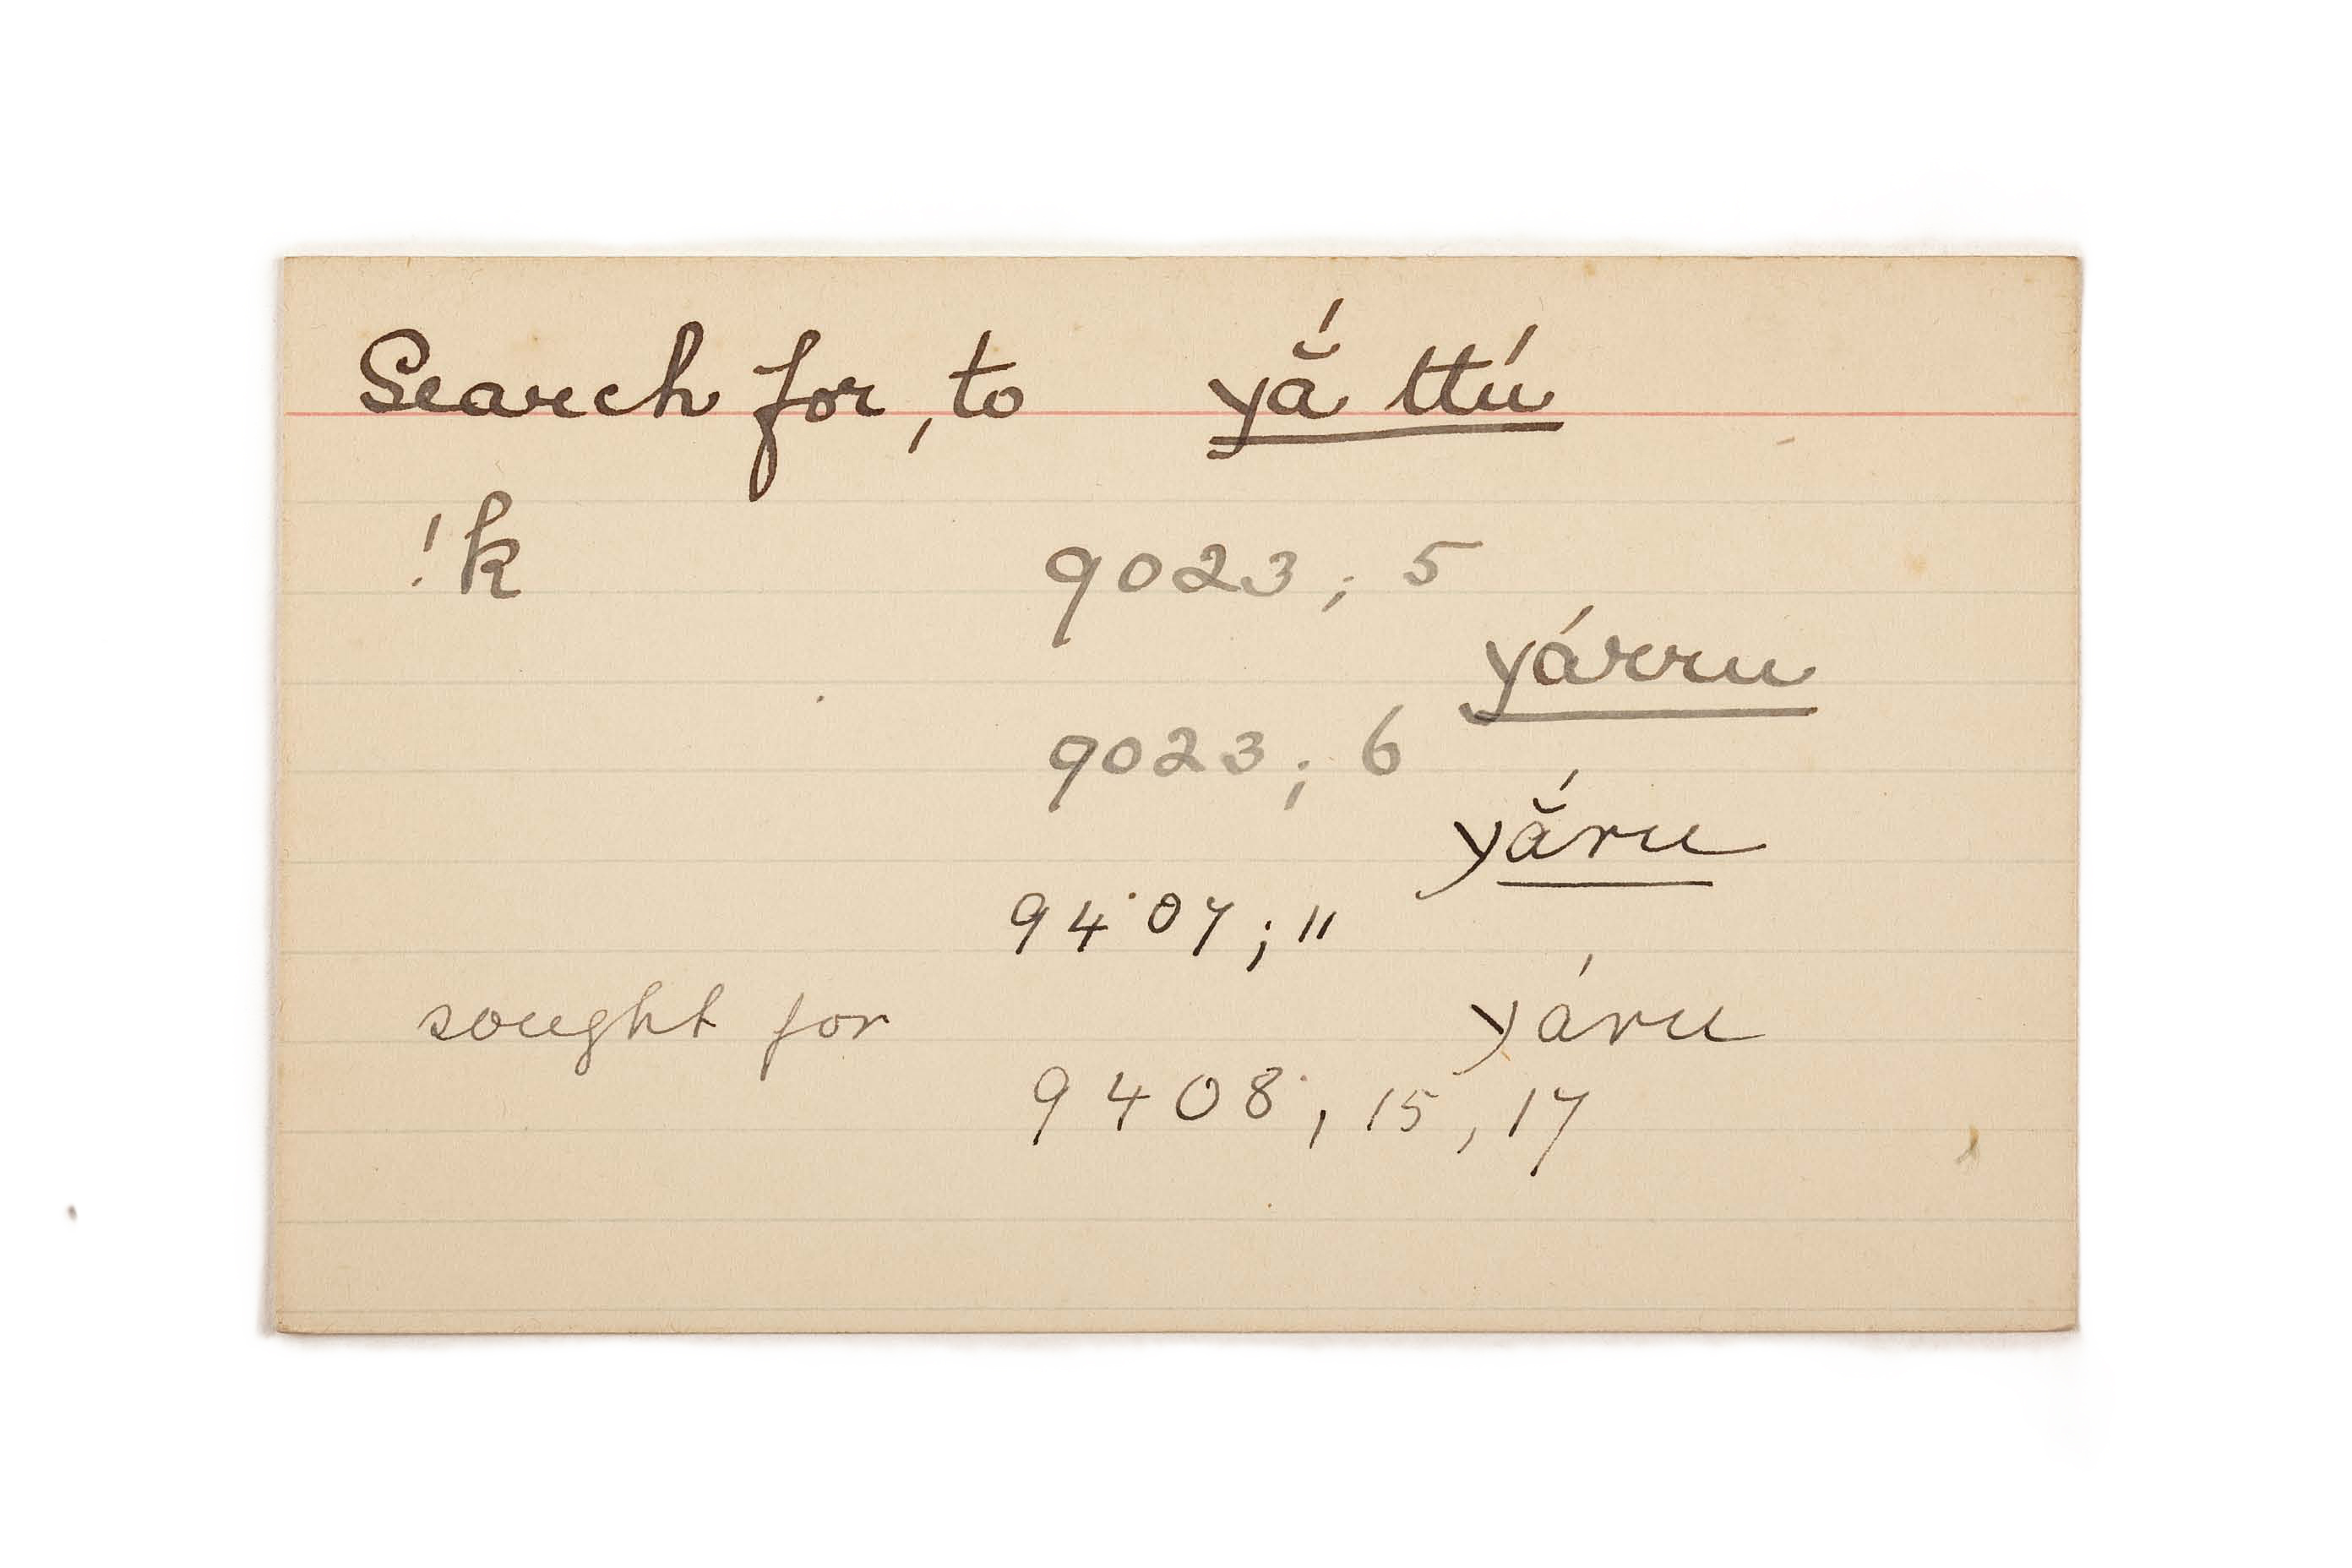 Search for, to yắ ttú
!k 9023; 5
yárru
9023; 6
yắru
9407; "
sought for yáru
9408, 15, 17